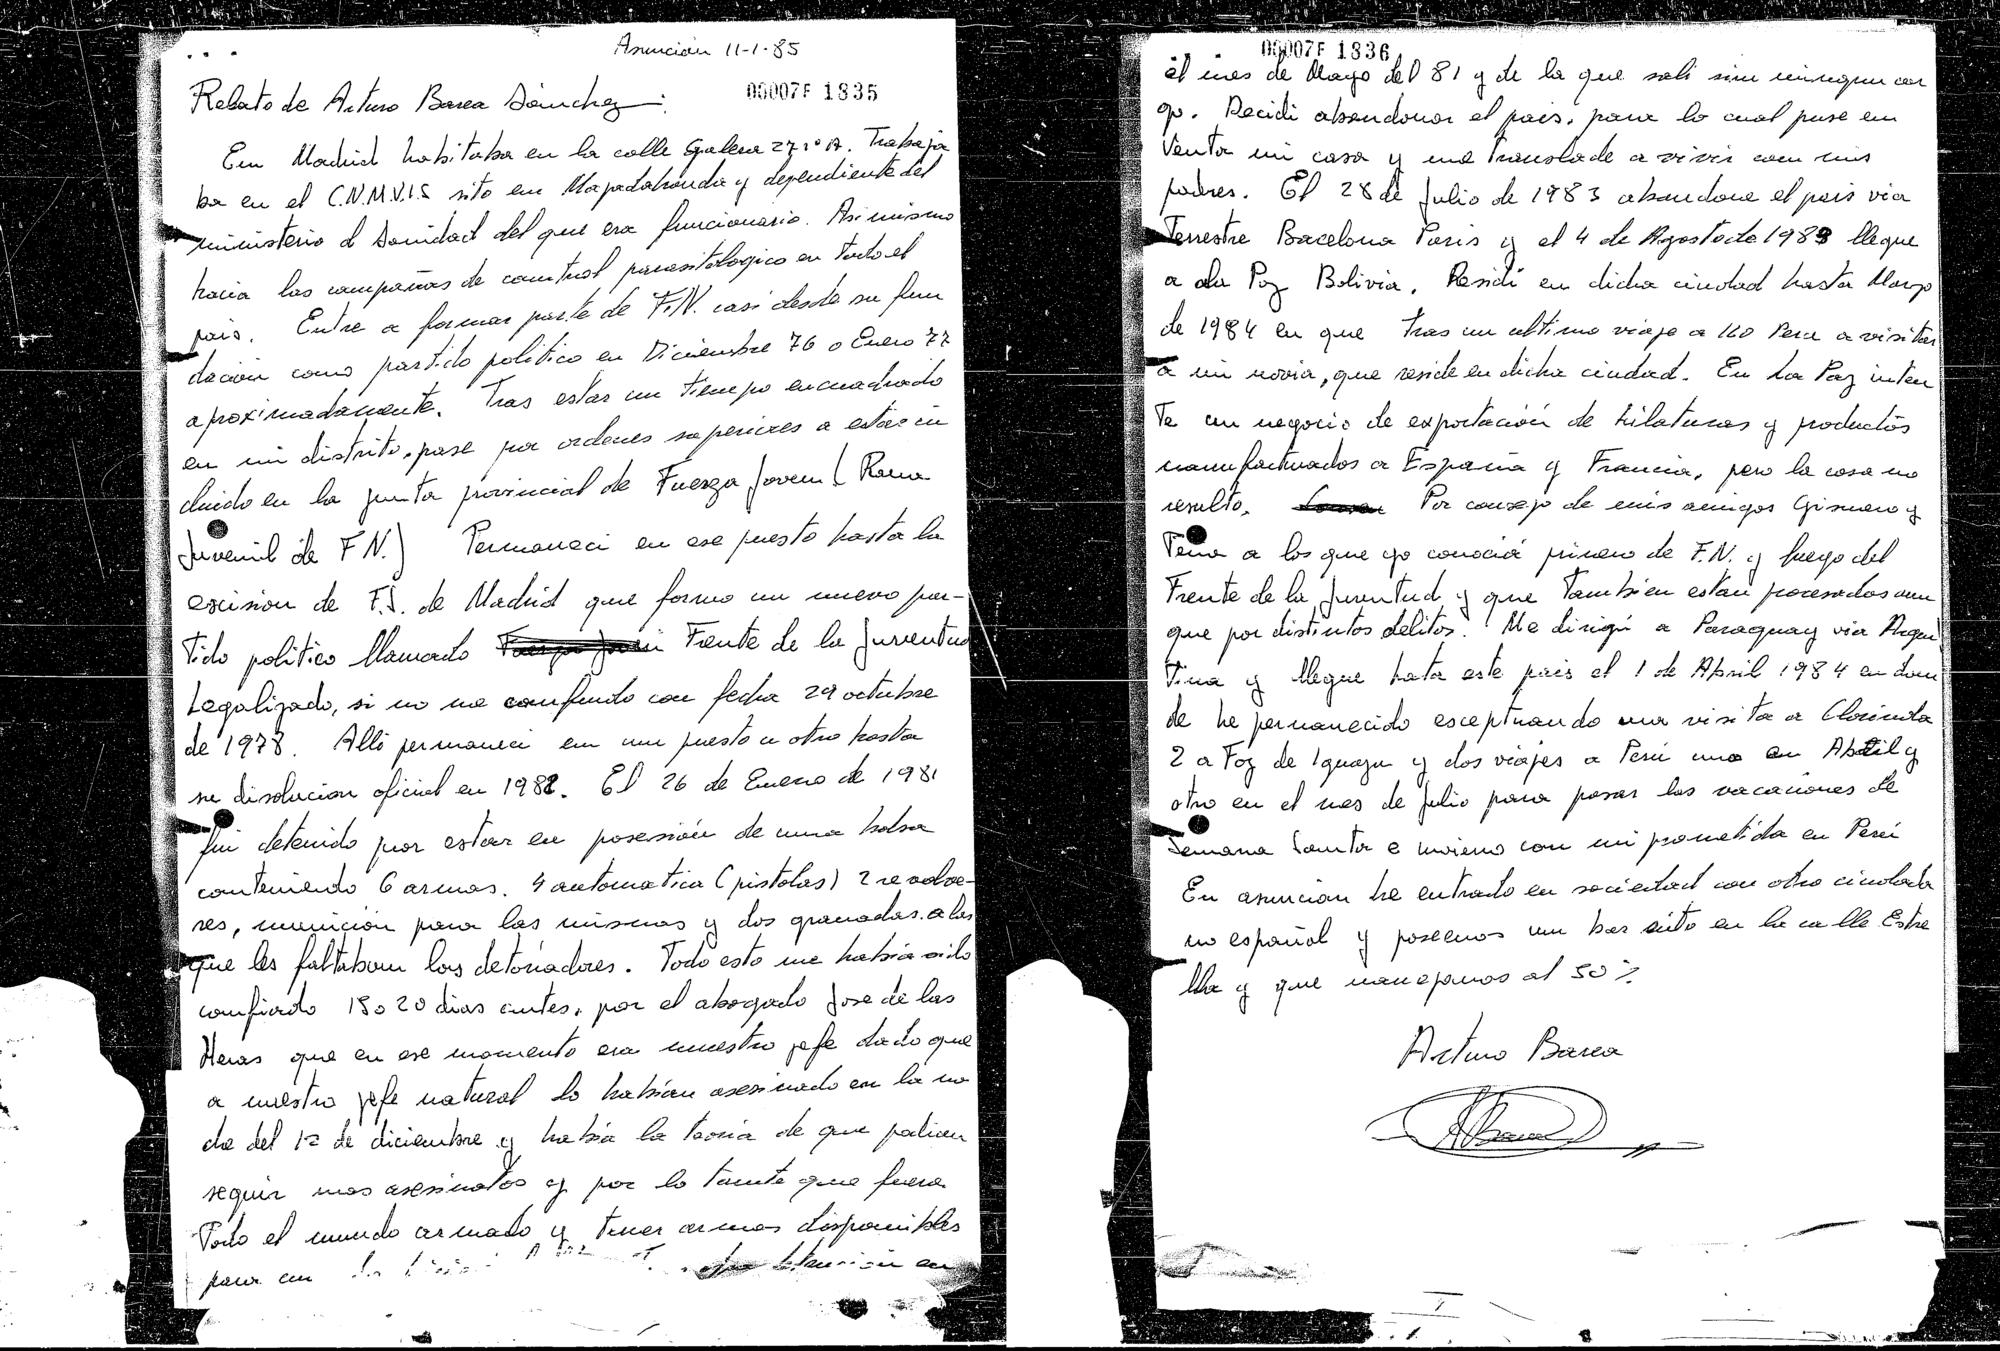 Asunción 11-1-85
00007F 1835
Relato de Arturo Barea Sánchez:
En Madrid habitaba en la calle Galera 27 1º A. Trabaja
ba en el C.N.M.V.I.S sito en Majadahonda y dependiente del
ministerio d Sanidad del que era funcionario. Asi mismo
hacia las campañas de control parasitologico en todo el
pais. Entre a formar parte de F.N. casi desde su fun
dación como partido politico en Diciembre 76 o Enero 77
aproximadamente. Tras estar un tiempo encuadrado
en mi distrito, pase por ordenes superiores a estar in
cluido en la junta provincial de Fuerza Joven (Rama
Juvenil de F.N.) Permaneci en ese puesto hasta la
escision de F.J. de Madrid que formo un nuevo par-
tido politico llamado Fuerza Joven Frente de la Juventud
Legalizado, si no me confundo con fecha 29 octubre
de 1978. Alli permaneci en un puesto u otro hasta
su disolucion oficial en 1982. El 26 de Enero de 1981
fui detenido por estar en posesión de una bolsa
conteniendo 6 armas. 4 automatica (pistolas) 2 revolve-
res, munición para las mismas y dos granadas a las
que les faltaban los detonadores. Todo esto me habia sido
confiado 15 o 20 dias antes, por el abogado Jose de las
Heras que en ese momento era nuestro jefe dado que
a nuestro jefe natural lo habian asesinado en la no
che del 12 de diciembre y habia la teoria de que podian
seguir mas asesinatos y por lo tanto que fuera
Todo el mundo armado y tener armas disponibles
para un detención en
00007F 1836
el mes de Mayo del 81 y de la que sali sin ningun car
go. Decidi abandonar el pais, para lo cual puse en
Venta mi casa y me translade a vivir con mis
padres. El 28 de Julio de 1983 abandone el pais via
Terrestre Barcelona Paris y el 4 de Agosto de 1983 llegue
a la Paz Bolivia. Residi en dicha ciudad hasta Marzo
de 1984 en que tras un ultimo viaje a ILO Peru a visitar
a mi novia, que reside en dicha ciudad. En La Paz inten
te un negocio de exportación de hilaturas y productos
manufacturados a España y Francia, pero la cosa no
resulto. Por consejo de mis amigos Gismero y
a los que yo conociá primero de F.N. y luego del
Frente de la Juventud y que también estan procesados aun
que por distintos delitos. Me dirigí a Paraguay via Argen
Tina y llegue hata este pais el 1 de Abril 1984 en don
de he permanecido esceptuando una visita a Clorinda
2 a Foz de Iguazu y dos viajes a Perú uno en Abril y
otro en el mes de Julio para pasar las vacaciones de
Semana Santa e invierno con mi prometida en Perú
En asuncion he entrado en sociedad con otro ciudada
no español y poseemos un bar sito en la calle Estre
lla y que manejamos al 50%
Arturo Barea
ABarea